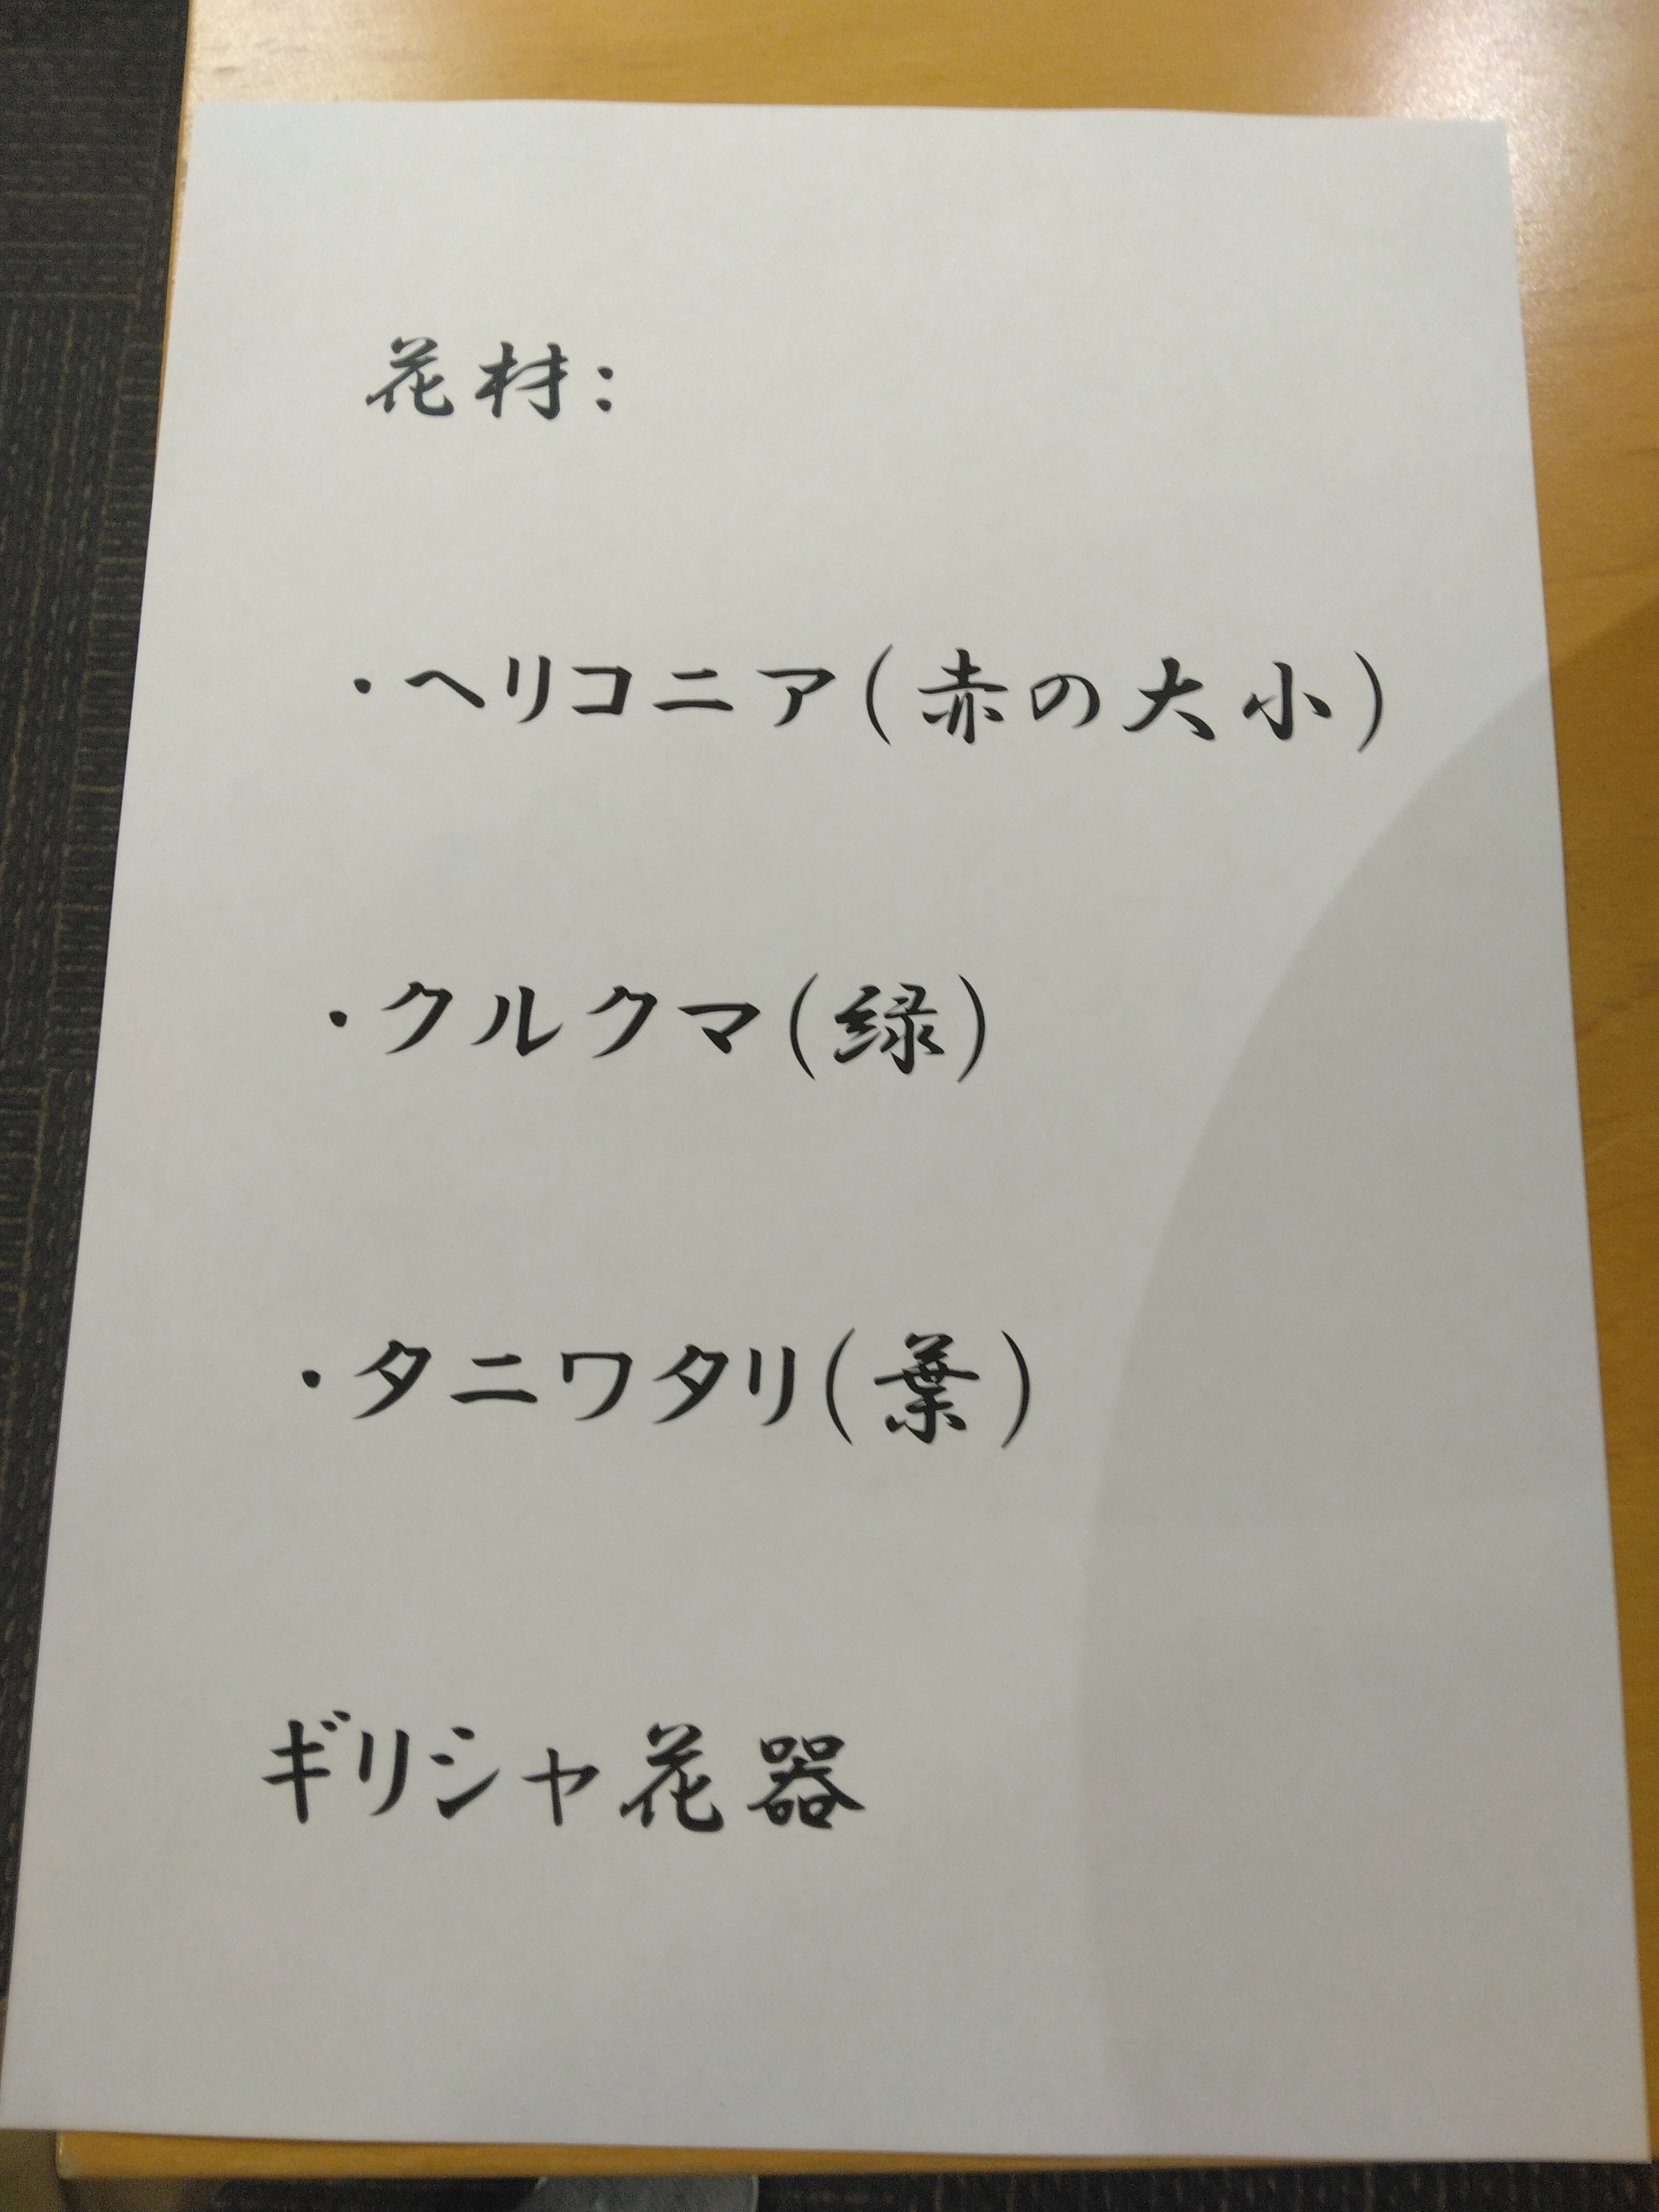 花材:
・ヘリコニア(赤の大小)
・クルクマ(緑)
・タニワタリ(葉)
ギリシャ花器